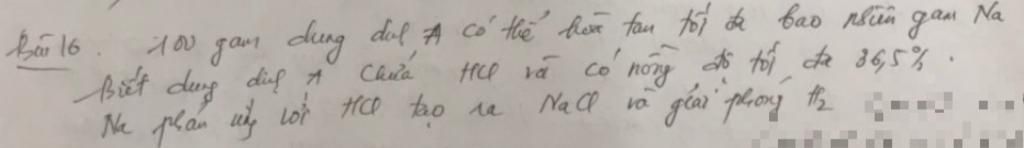 Bài 16. 100 gam dung dịch A có thể hoà tan tối đa bao nhiêu gam Na
Biết dung dịch A chứa HCl và có nồng độ tối đa 36,5%.
Na phản ứng với HCl tạo ra NaCl và giải phóng H2